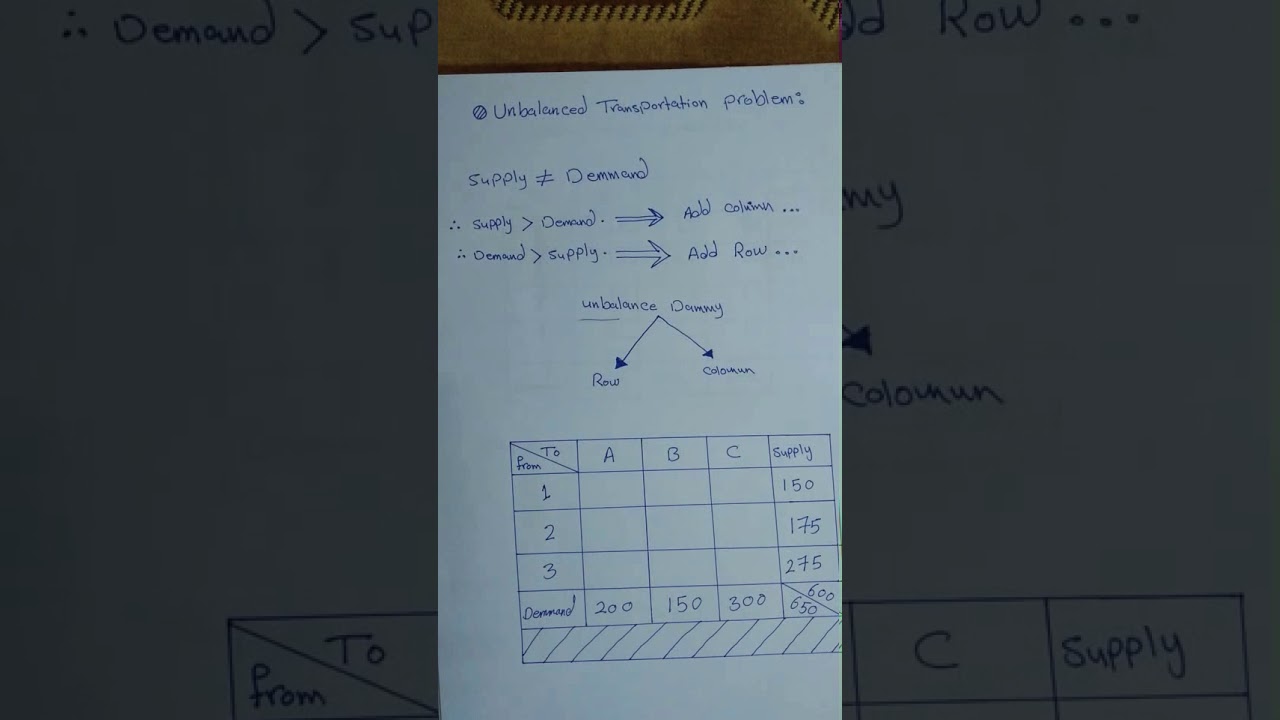 Unbalanced Transportation problem:
Supply ≠ Demmand
∴ Supply > Demand. ⟹ Add Column ...
∴ Demand > Supply. ⟹ Add Row ...
unbalance Dammy
Row Coloumn
From To A B C Supply
1 150
2 175
3 275
Demmand 200 150 300 600 650
∴ Demand > Sup
dd Row ...
my
Coloumn
From To
C Supply